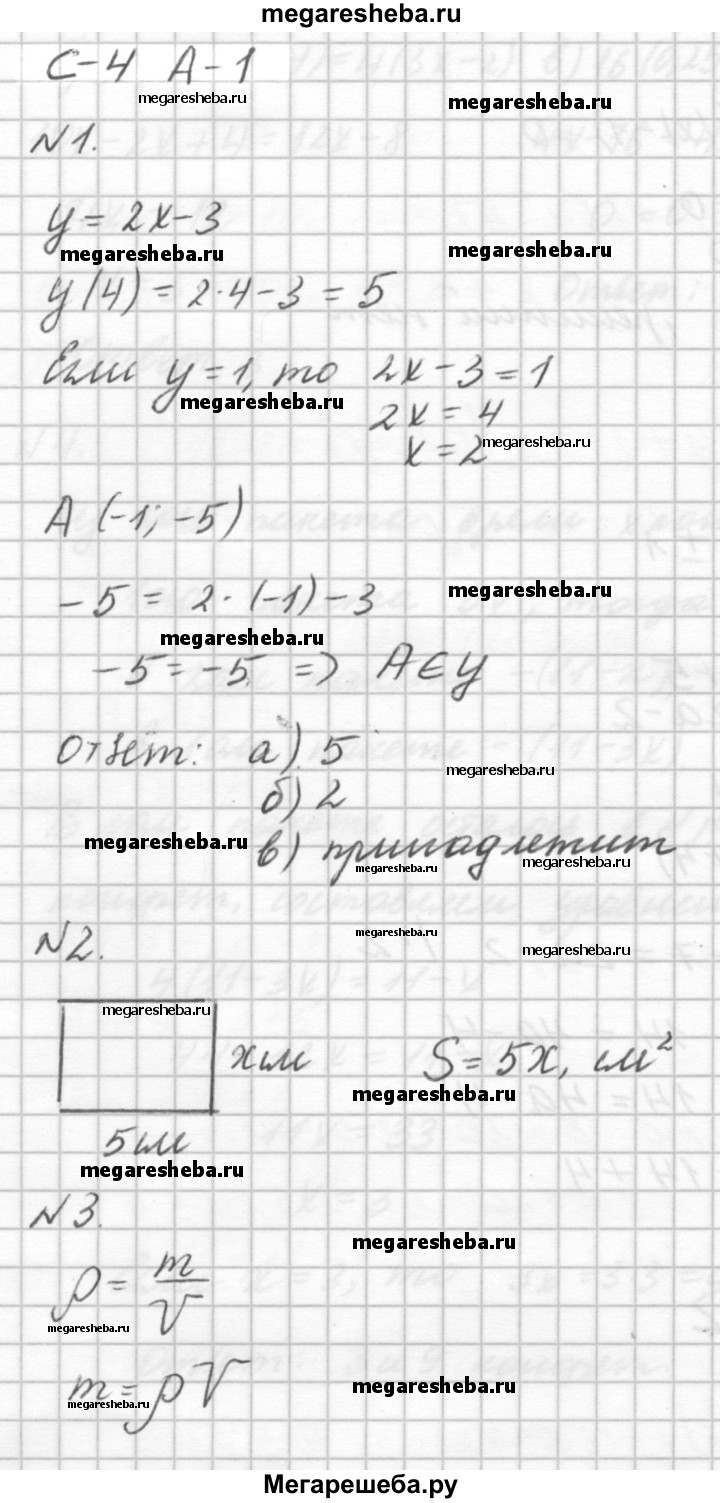 megaresheba.ru
С-4 А-1
megaresheba.ru
megaresheba.ru
№1.
y = 2x - 3
megaresheba.ru
megaresheba.ru
y(4) = 2·4 - 3 = 5
Если y = 1, то 2x - 3 = 1
megaresheba.ru
2x = 4
x = 2
megaresheba.ru
A (-1; -5)
-5 = 2·(-1) - 3
megaresheba.ru
megaresheba.ru
-5 = -5 => A ∈ y
Ответ: а) 5
megaresheba.ru
б) 2
megaresheba.ru
в) принадлежит
megaresheba.ru
megaresheba.ru
№2.
megaresheba.ru
megaresheba.ru
megaresheba.ru
x см
S = 5x, см²
megaresheba.ru
5 см
megaresheba.ru
№3.
megaresheba.ru
ρ = m/V
megaresheba.ru
m = ρV
megaresheba.ru
megaresheba.ru
Мегарешеба.ру